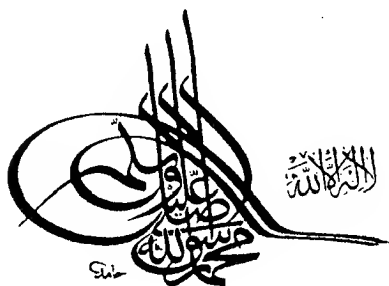 لا إله إلا الله
محمد رسول الله
صلى الله عليه وسلم
حامد